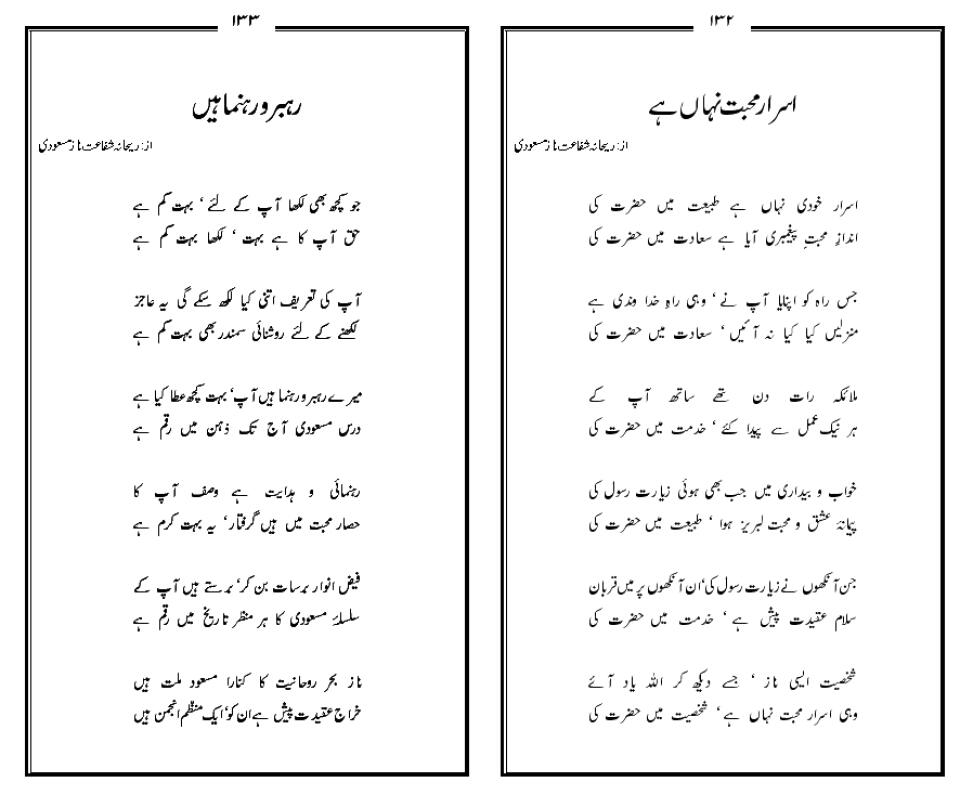 ۱۳۲
اسرار محبت نہاں ہے
از: ریحانہ شفاعت ناز مسعودی
اسرار خودی نہاں ہے طبیعت میں حضرت کی
اندازِ محبتِ پیغمبری آیا ہے سعادت میں حضرت کی
جس راہ کو اپنایا آپ نے ‘ وہی راہِ خدا وندی ہے
منزلیں کیا کیا نہ آئیں ‘ سعادت میں حضرت کی
ملائکہ رات دن تھے ساتھ آپ کے
ہر نیک عمل سے پیدا کئے ‘ خدمت میں حضرت کی
خواب و بیداری میں جب بھی ہوئی زیارت رسول کی
پیمانۂ عشق و محبت لبریز ہوا ‘ طبیعت میں حضرت کی
جن آنکھوں نے زیارت رسول کی ‘ ان آنکھوں پر میں قربان
سلام عقیدت پیش ہے ‘ خدمت میں حضرت کی
شخصیت ایسی ناز ‘ جسے دیکھ کر اللہ یاد آئے
وہی اسرار محبت نہاں ہے ‘ شخصیت میں حضرت کی
۱۳۳
رہبر و رہنما ہیں
از: ریحانہ شفاعت ناز مسعودی
جو کچھ بھی لکھا آپ کے لئے ‘ بہت کم ہے
حق آپ کا ہے بہت ‘ لکھا بہت کم ہے
آپ کی تعریف اتنی کیا لکھ سکے گی یہ عاجز
لکھنے کے لئے روشنائی سمندر بھی بہت کم ہے
میرے رہبر و رہنما ہیں آپ ‘ بہت کچھ عطا کیا ہے
درس مسعودی آج تک ذہن میں رقم ہے
رہنمائی و ہدایت ہے وصف آپ کا
حصار محبت میں ہیں گرفتار ‘ یہ بہت کرم ہے
فیض انوار برسات بن کر ‘ برستے ہیں آپ کے
سلسلۂ مسعودی کا ہر منظر تاریخ میں رقم ہے
ناز بحر روحانیت کا کنارا مسعود ملت ہیں
خراج عقیدت پیش ہے ان کو ‘ ایک منظم انجمن ہیں